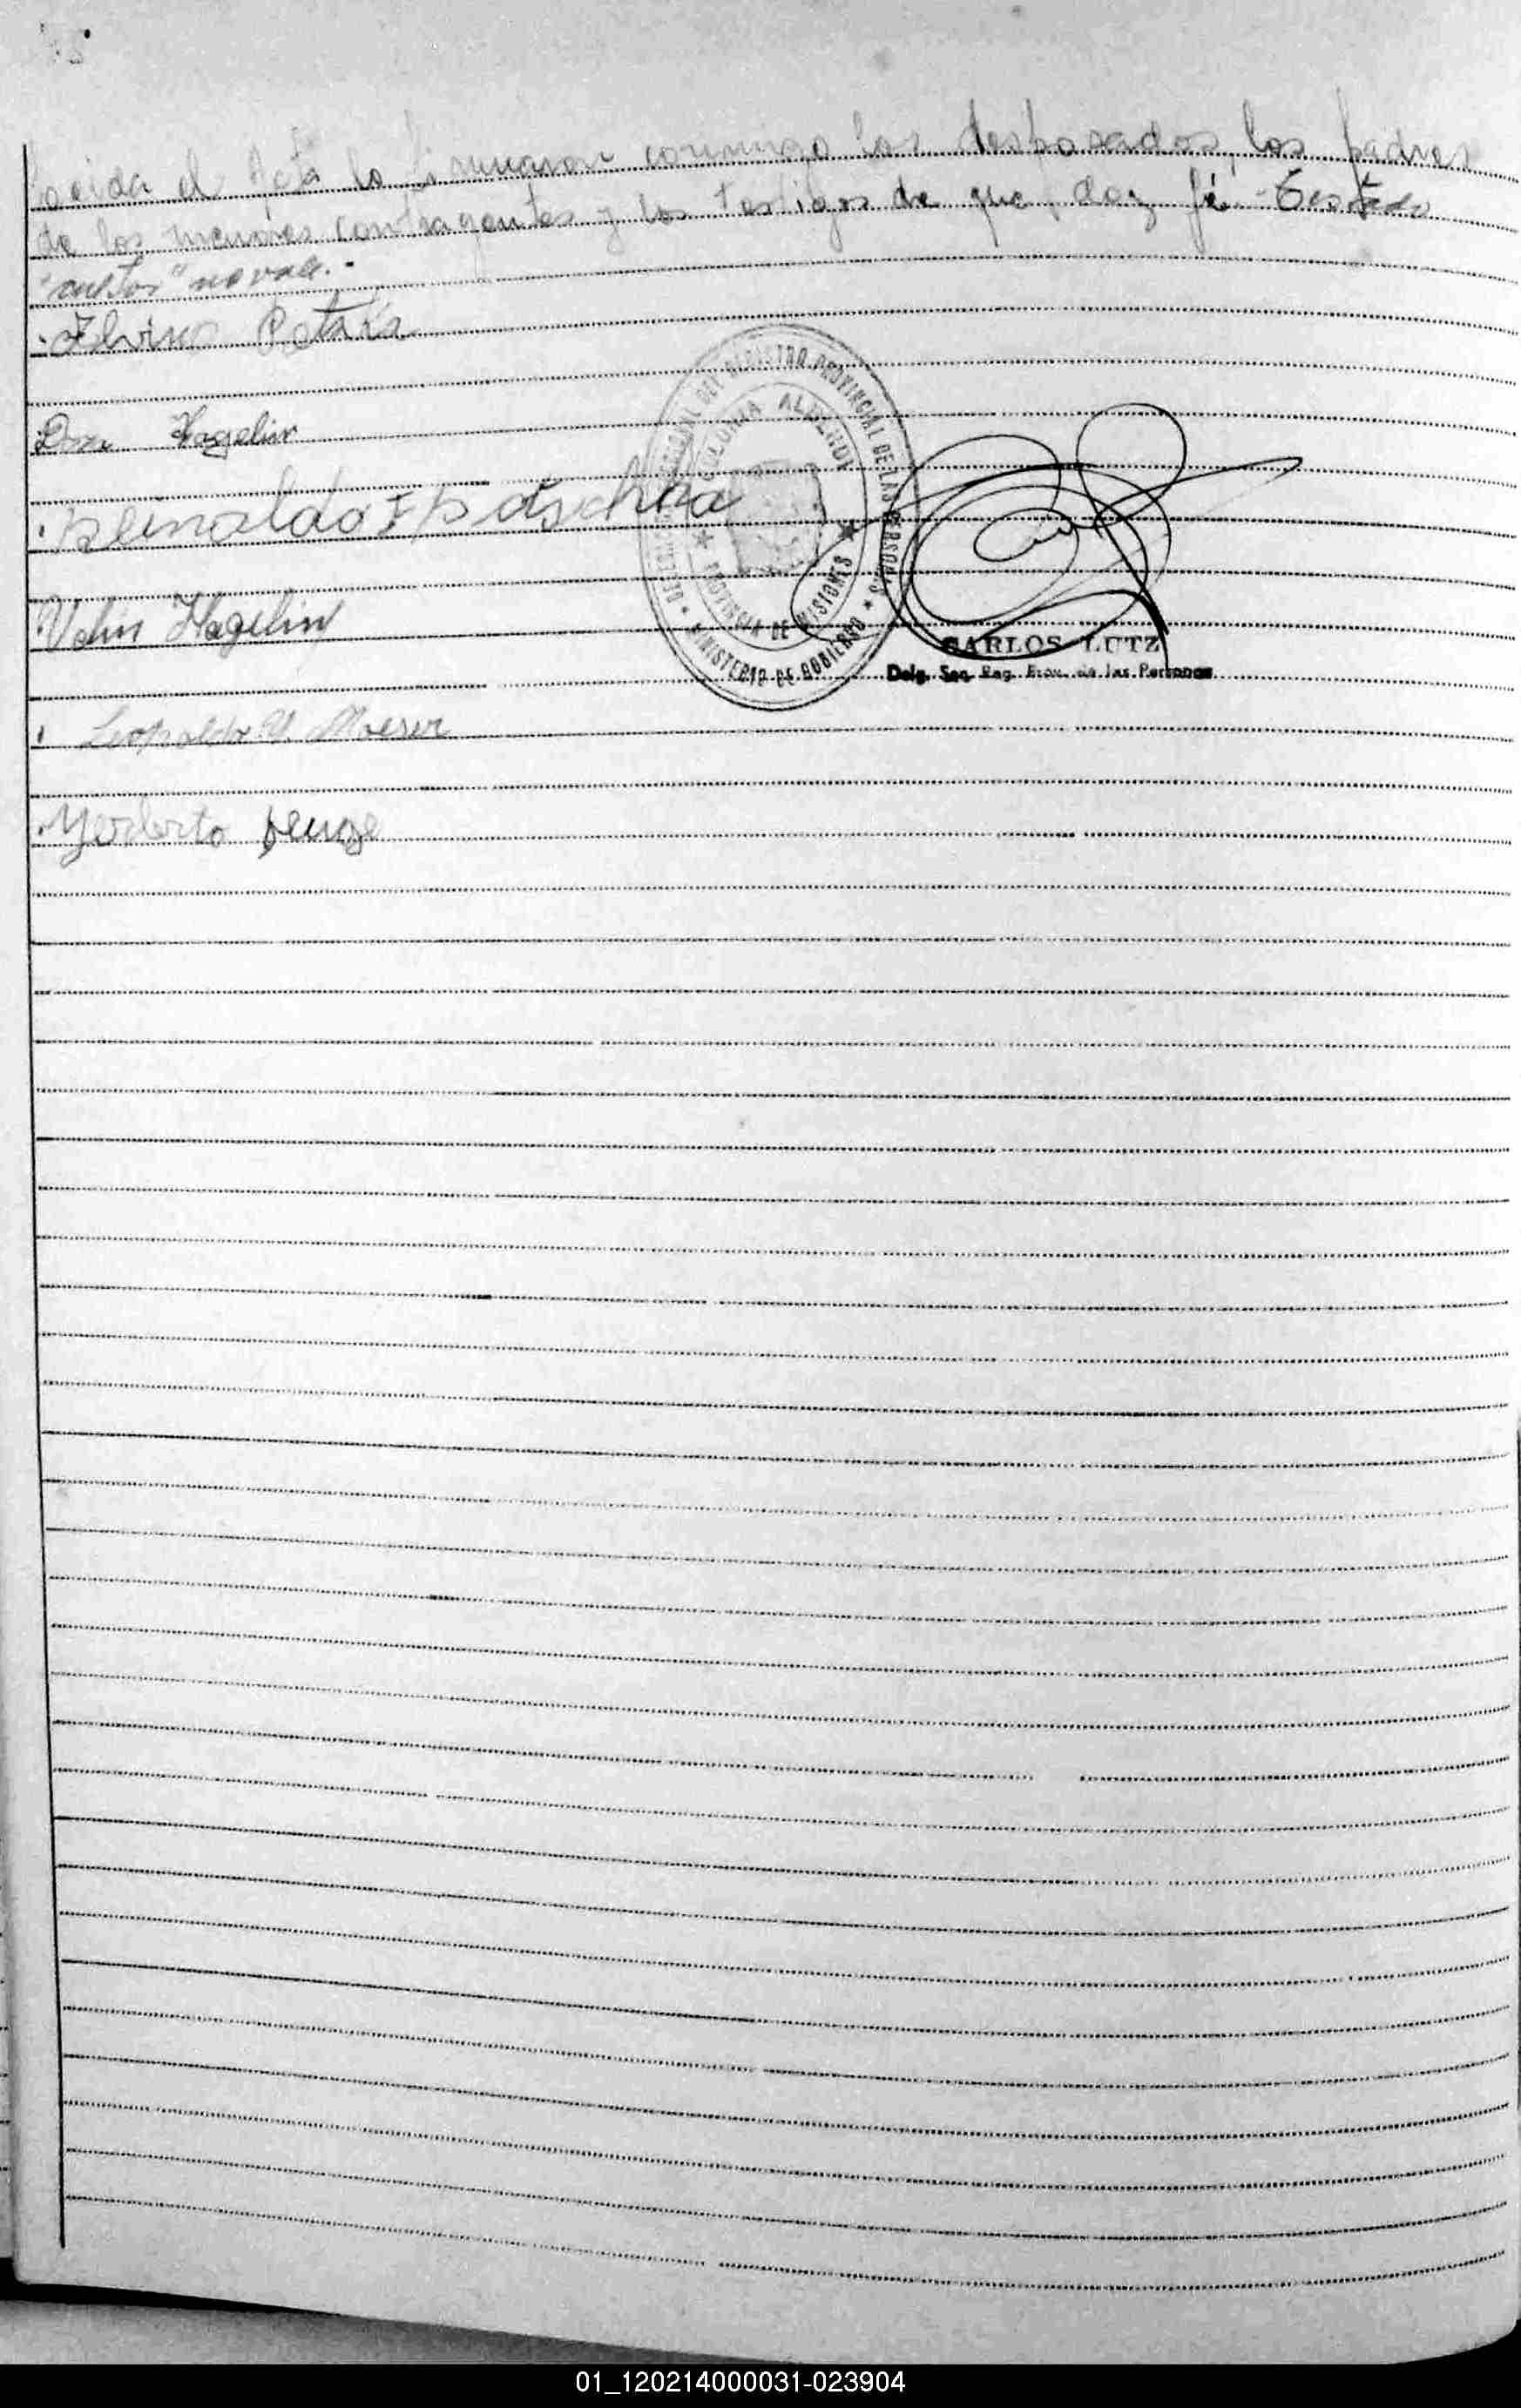 Leida el Acta la firmaron conmigo los desposados, los padres
de los menores contrayentes y los testigos de que doy fé - Testado
no vale. -
Dora Hagelin
Reinaldo
Valin Hagelin
Leopoldo Moeser
DELEGACION SECCIONAL DEL REGISTRO PROVINCIAL DE LAS PERSONAS
MINISTERIO DE GOBIERNO
COLONIA ALBERDI
PROVINCIA DE MISIONES
CARLOS LUTZ
Delg. Sec. Reg. Prov. de las Personas
01_120214000031-023904